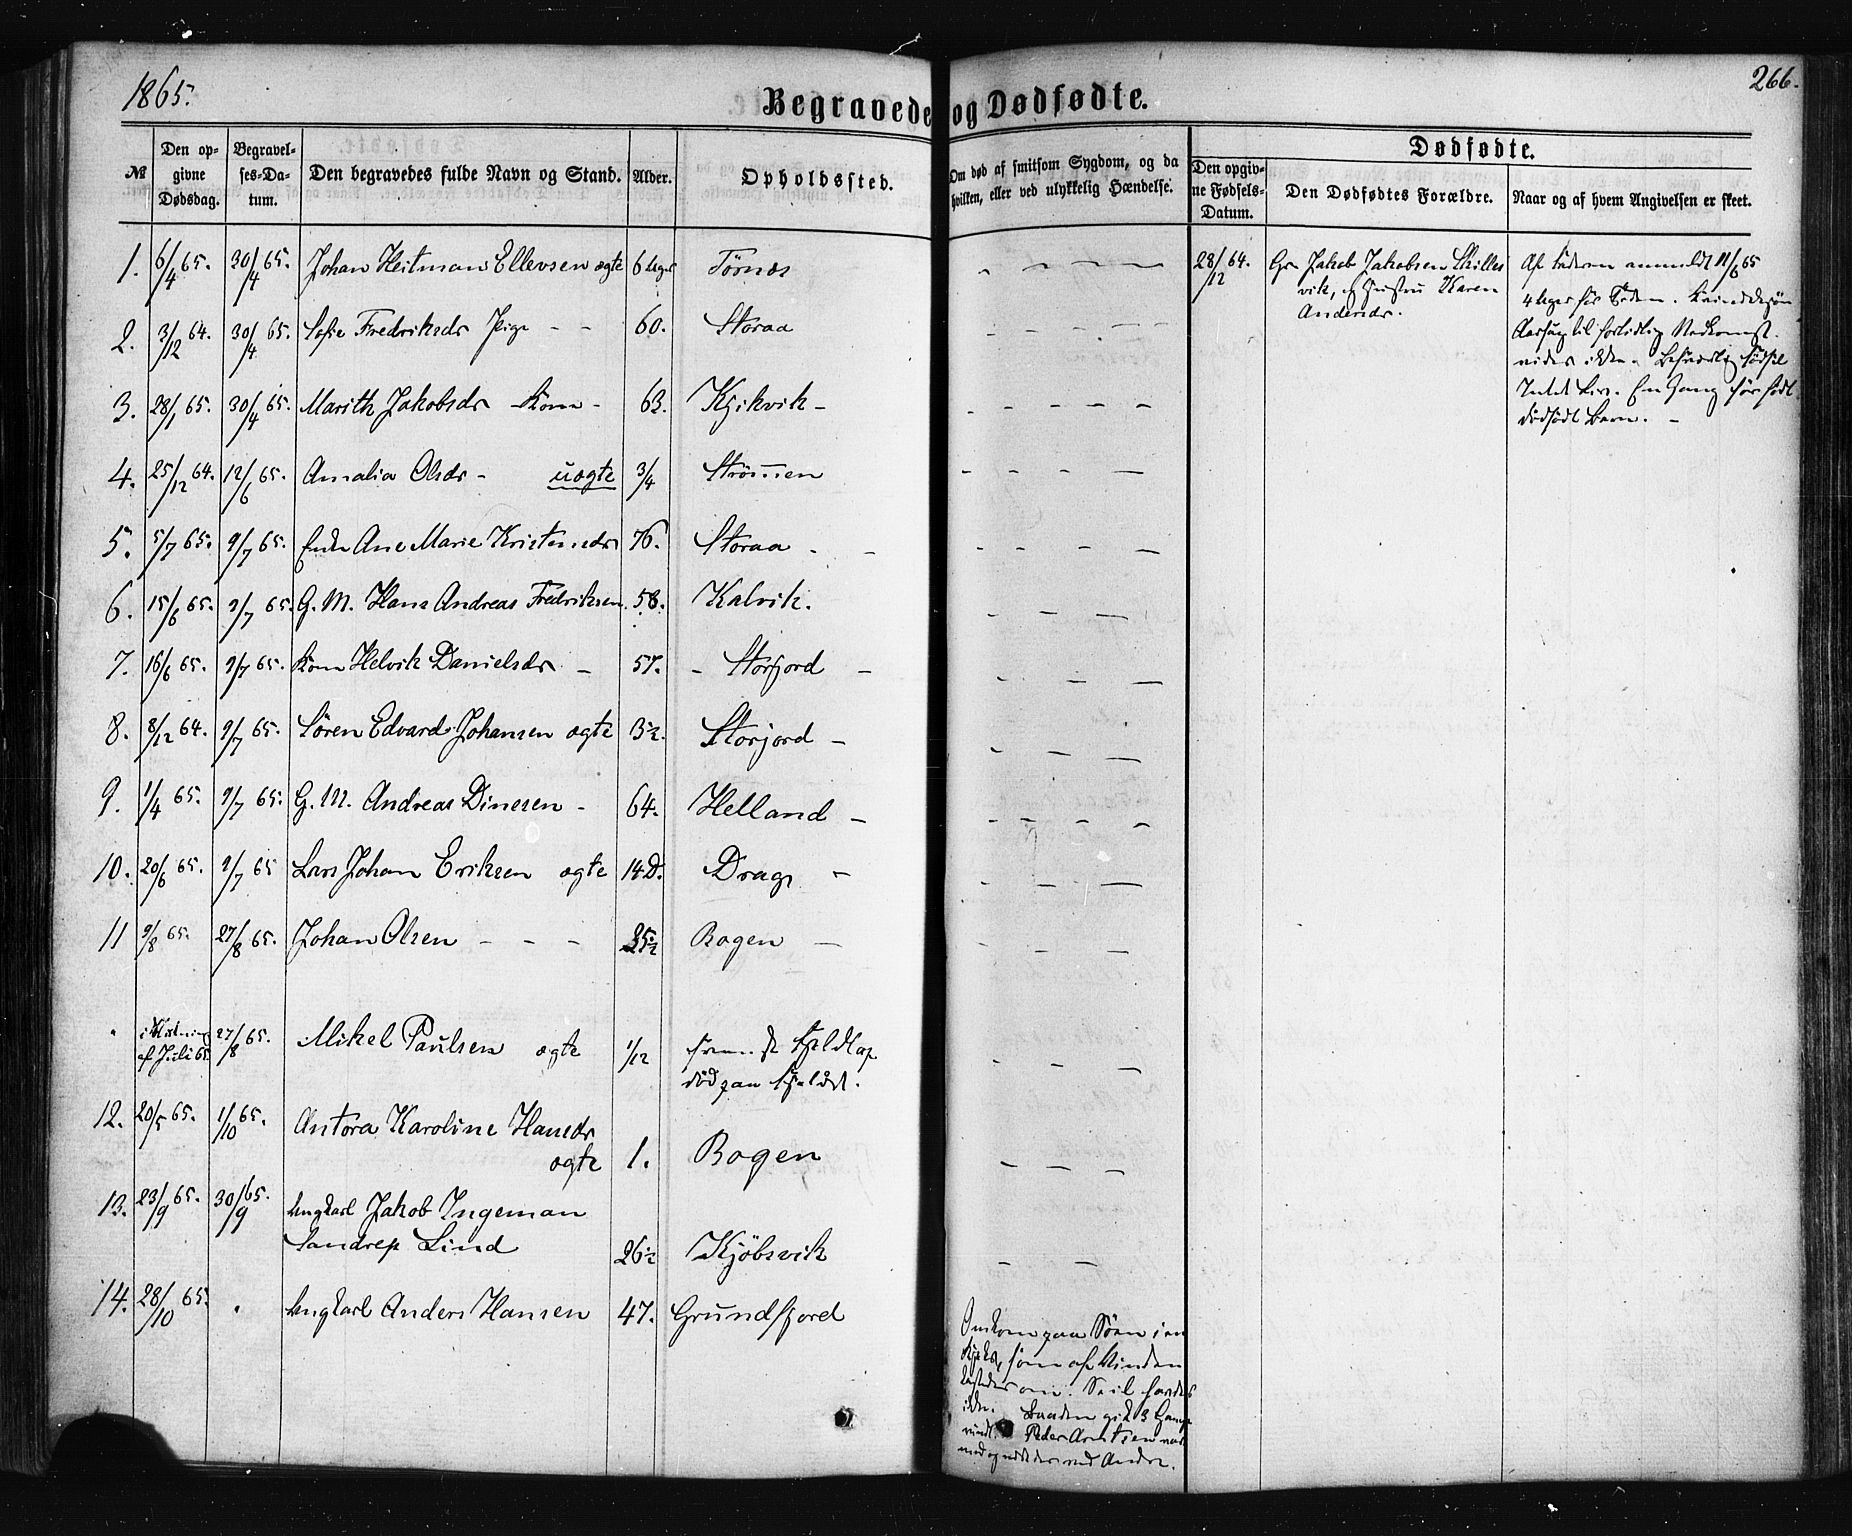 1865.
Begravede og Dødfødte.
266.
№
Den opgivne Dødsdag.
Begravelses-Datum.
Den begravedes fulde Navn og Stand.
Alder.
Opholdssted.
Om død af smitsom Sygdom, og da hvilken, eller ved ulykkelig Hændelse.
Dødfødte.
Den opgivne Fødsels-Datum.
Den Dødfødtes Forældre.
Naar og af hvem Angivelsen er skeet.
1. 6/4 65. 30/4 65. Johan Heitman Ellevsen ægte 6 Uger Tørnæs
28/12 64. Gr. Jakob Jakobsen
vik, Hustru Karen
Andersdr.
Af Faderen anmeldt 11/6 65
4 Uger før Tiden.
Aarsag til fortidlig Nedkomst
vides ikke. Besværlig Fødsel
Intet Liv. En Gang før født
dødfødt Barn.
2. 3/12 64. 30/4 65. Sofie Fredriksdr Pige 60. Storaa
3. 28/1 65. 30/4 65. Marith Jakobsdr Kone 63. Kjikvik
4. 25/12 64. 12/6 65. Amalia Olsdr uægte 3/4 Strömen
5. 5/7 65. 9/7 65. Enke Ane Marie Kristensdr 76. Storaa
6. 15/6 65. 9/7 65. G. M. Hans Andreas Fredriksen 58. Kalvik.
7. 16/6 65. 9/7 65. Kone Helvik Danielsdr 57. Storfjord
8. 8/12 64. 9/7 65. Søren Edvard Johansen ægte 3½ Storjord
9. 1/4 65. 9/7 65. G. M. Andreas Dinesen 64. Helland
10. 20/6 65. 9/7 65 Lars Johan Eriksen ægte 14 D. Drag
11 9/8 65. 27/8 65. Johan Olsen 25½ Bogen
" i
af Juli 65. 27/8 65. Mikel Paulsen ægte 1/12 svensk Fjeldlap
død paa Fjeldet.
12. 20/5 65. 1/10 65. Antora Karoline Hansdr
ægte 1. Bogen
13. 23/9 65. 30/9 65. Ungkarl Jakob Ingeman
Sandrep Lind 26½ Kjöbsvik
14. 28/10 65. " Ungkarl Anders Hansen 47. Grundfjord
Omkom paa Söen i en
som af Vinden
kastedes om. Seil
ikke. Baaden gik 3 Gange
rundt. Peder Arntsen var
med og reddedes ved Andre.